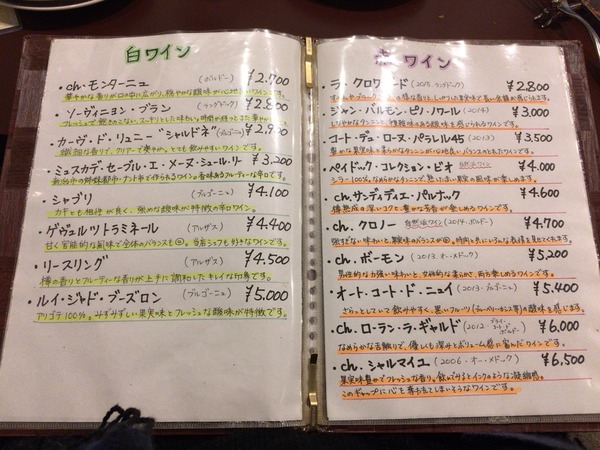 白ワイン
・ch.モンターニュ (ボルドー) ¥2.700
華やかな香りが口の中に広がり、穏やかな酸味が心地よいワインです。
・ソーヴィニヨン・ブラン (ラングドック) ¥2.800
フレッシュで飽きのこない、スッキリとした味わい。
・カーヴ・ド・リュニー "シャルドネ" (ブルゴーニュ) ¥2.900
繊細な香りで、クリアーで爽やか。とても飲みやすいワインです。
・ミュスカデ・セーブル・エ・メーヌ・シュール・リー ¥3.200
新潟市の姉妹都市・ナント市で作られるワイン。香味あるフルーティーな辛口です。
・シャブリ (ブルゴーニュ) ¥4.100
カキとも相性が良く、強めな酸味が特徴の辛口ワイン。
・ゲヴュルツトラミネール (アルザス) ¥4.400
甘く官能的な風味で全体のバランスも◎。当店シェフも好きなワインです。
・リースリング (アルザス) ¥4.500
樽の香りとフルーティーな香りが上手に調和したキレイな印象です。
・ルイ・ジャド・ブーズロン (ブルゴーニュ) ¥5.000
アリゴテ100%。みずみずしい果実味とフレッシュな酸味が特徴です。
赤ワイン
・ラ・クロワザード (2015.ラングドック) ¥2.800
・ジャン・バルモン・ピノ・ノワール (2014) ¥3.000
しなやかなタンニンと複雑味のある酸味も感じられるワインです。
・コート・デュ・ローヌ・パラレル45 (2013) ¥3.500
豊かな果実味と柔らかなタンニンが心地良い、バランスのとれたワインです。
・ペイドック・コレクション・ビオ 自然派ワイン ¥4.000
シラー100%。なめらかなタンニンで、熟した赤い果実の風味が楽しめます。
・ch.サンディディエ・パルナック ¥4.600
樽熟成の深いコクと豊かな芳香が楽しめるワインです。
・ch.クロノー 自然派ワイン (2014.ボルドー) ¥4.700
飽きのこない味わいと、酸味のバランスが◎。時間と共にいろいろな表情を見せてくれます。
・ch.ボーモン (2013.オー・メドック) ¥5.200
男性的な力強い味わいと、女性的な柔らかさ、両方楽しめるワインです。
・オート・コート・ド・ニュイ (2013.ブルゴーニュ) ¥5.400
さらっとしていて飲みやすく、黒いフルーツ(ブルーベリー・カシス等)の酸味を感じます。
・ch.ローラン・ラ・ギャルド (2012.プライ・コート・ド・ボルドー) ¥6.000
なめらかな舌触りで、優しくも深みとボリューム感に富んだワインです。
・ch.シャルマイユ (2006.オー・メドック) ¥6.500
果実味豊かでフレッシュな香り。飲んでみるとインクのような凝縮感。
このギャップに心を奪われてしまいそうなワインです。